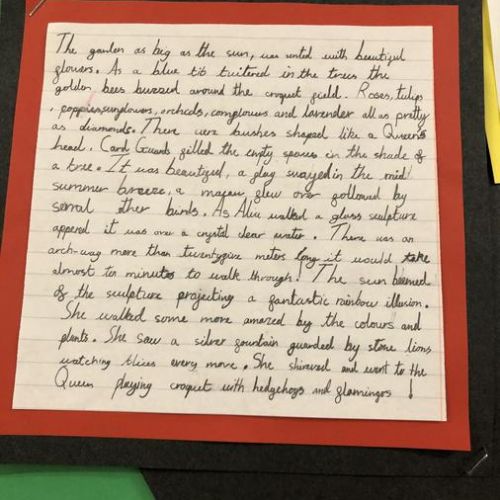 The garden as big as the sun, was united with beautiful
flowers. As a blue tit twitered in the trees the
golden bees buzzed around the croquet field. Roses, tulips
, poppies, sunflowers, orchids, cornflowers and lavender all as pretty
as diamonds. There were bushes shaped like a Queens
head. Card Guards filled the empty spaces in the shade of
a tree. It was beautiful, a flag swayed in the mid
summer breeze, a flew over followed by
other birds. As Alice walked a glass sculpture
appered it was over a crystal clear water. There was an
arch-way more than twentyfive meters long it would take
almost ten minutes to walk through! The sun beemed
of the sculpture projecting a fantastic rainbow illusion.
She walked some more amazed by the colours and
plants. She saw a silver fountain guarded by stone lions
watching Alices every move. She shivered and went to the
Queen playing croquet with hedgehogs and flamingos!